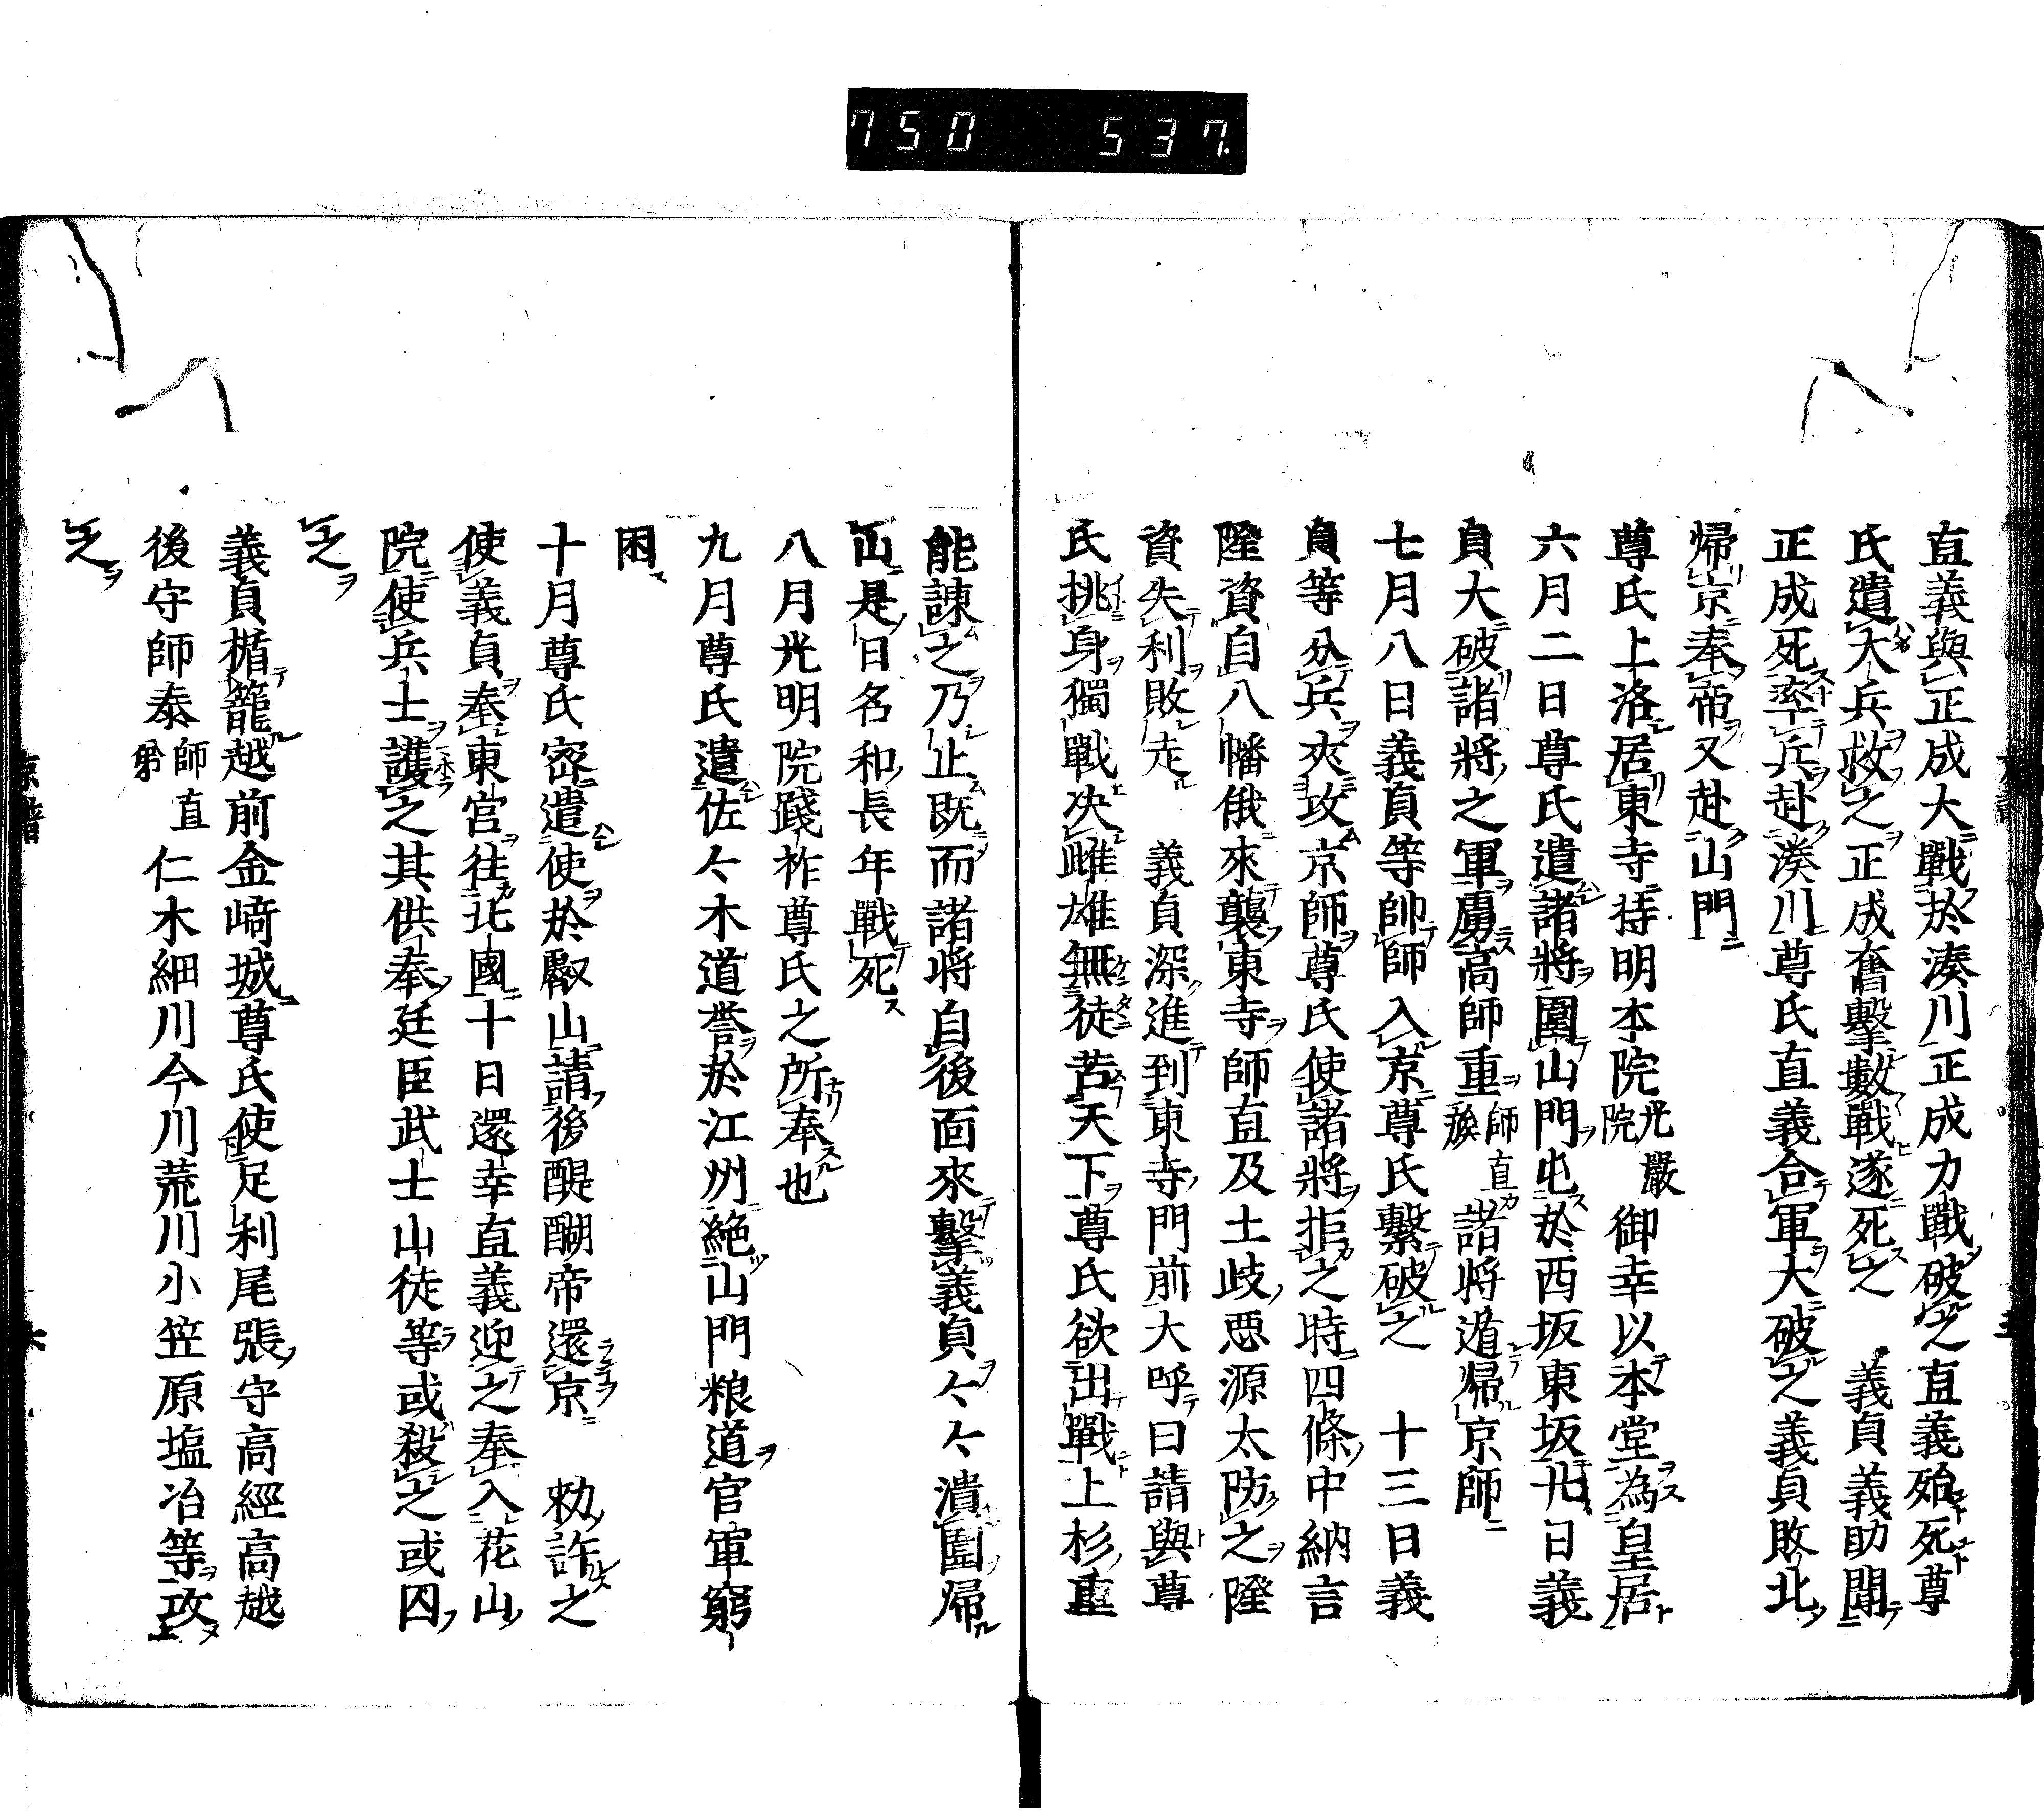 750 537
直義與正成大戰於湊川正成力戰破之直義殆死尊
氏遣大兵救之正成奮擊數戰遂死之 義貞義助聞
正成死率兵赴湊川尊氏直義合軍大破之義貞敗北
帰京奉帝又赴山門
尊氏上洛居東寺持明本院光嚴院御幸以本堂為皇居
六月二日尊氏遣諸將圍山門屯於西坂東坂廿日義
貞大破諸將之軍虜高師重師直族諸将遁帰京師
七月八日義貞等帥師入京尊氏繫破之 十三日義
貞等分兵夾攻京師尊氏使諸將拒之時四條中納言
隆資自八幡俄來襲東寺師直及土岐悪源太防之隆
資失利敗走 義貞深進到東寺門前大呼曰請與尊
氏挑身獨戰决雌雄無徒苦天下尊氏欲出戰上杉重
能諌之乃止既而諸将自後面來擊義貞々々潰圍帰
山是日名和長年戰死
八月光明院踐柞尊氏之所奉也
九月尊氏遣佐々木道誉於江州絶山門粮道官軍窮
困
十月尊氏密遣使於叡山請後醍醐帝還京 勑許之
使義貞奉東宮往北國十日還幸直義迎之奉入花山
院使兵士護之其供奉廷臣武士山徒等或殺之或囚
之
義貞楯籠越前金﨑城尊氏使足利尾張守高經高越
後守師泰師直弟仁木細川今川荒川小笠原塩冶等攻
之